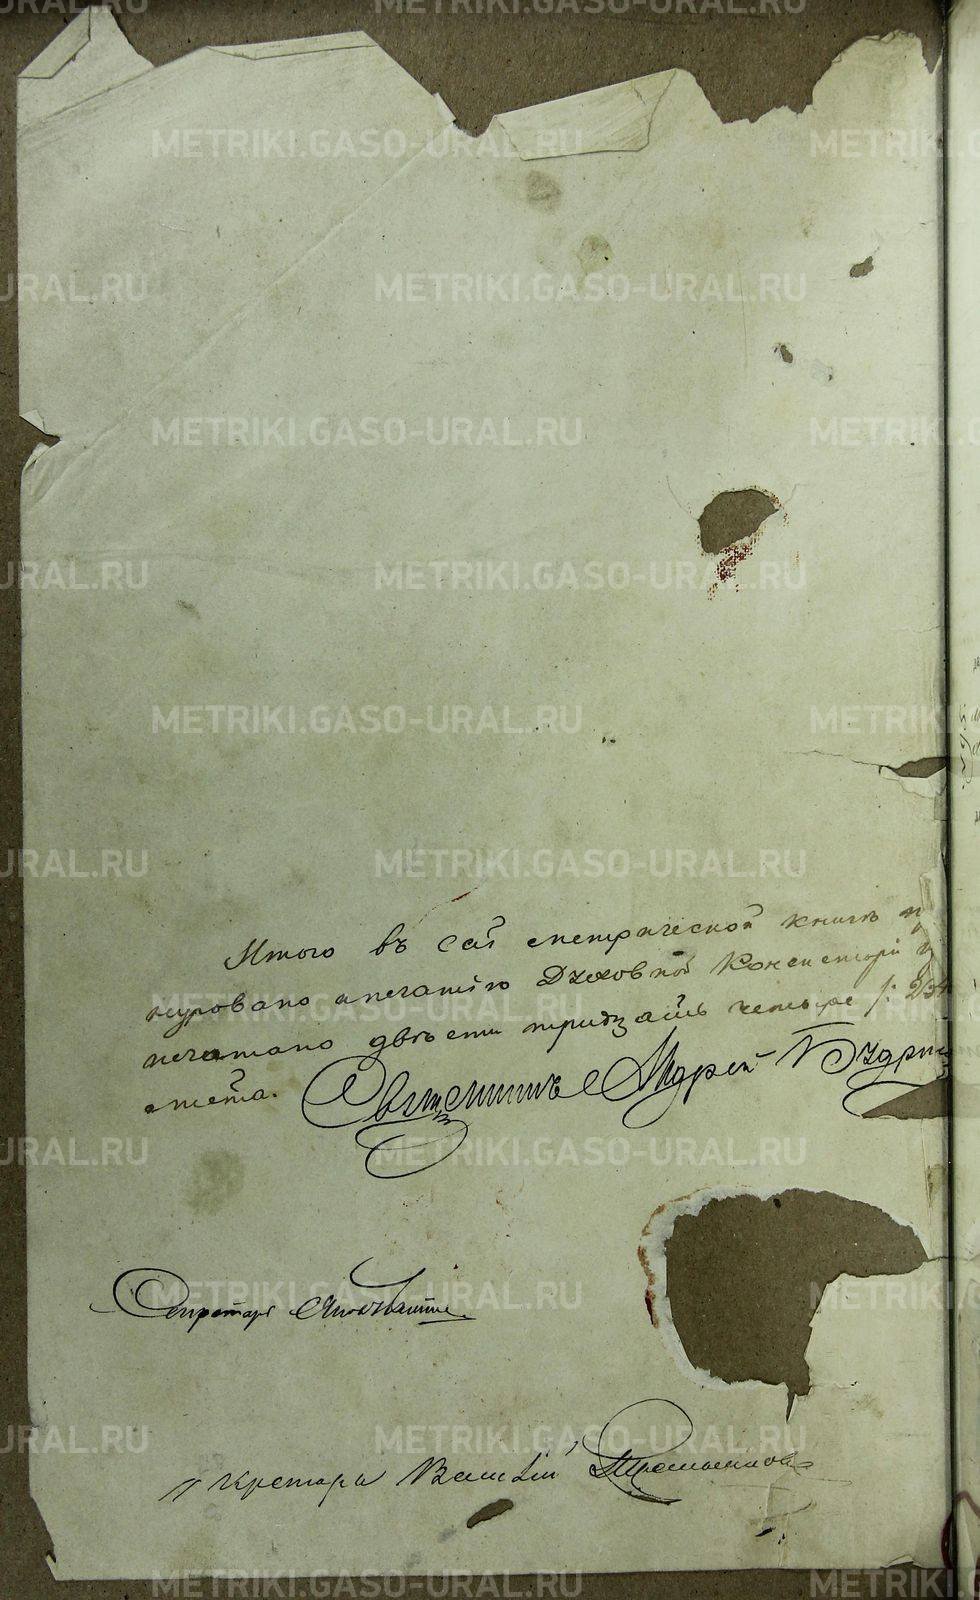 METRIKI.GASO-URAL.RU
Итого въ сей метрической книгѣ
нуровано и печатію Духовной Консисторіи
печатано двѣсти тридцать четыре /: 234
листа. Священникъ Андрей
Секретарь
Василій